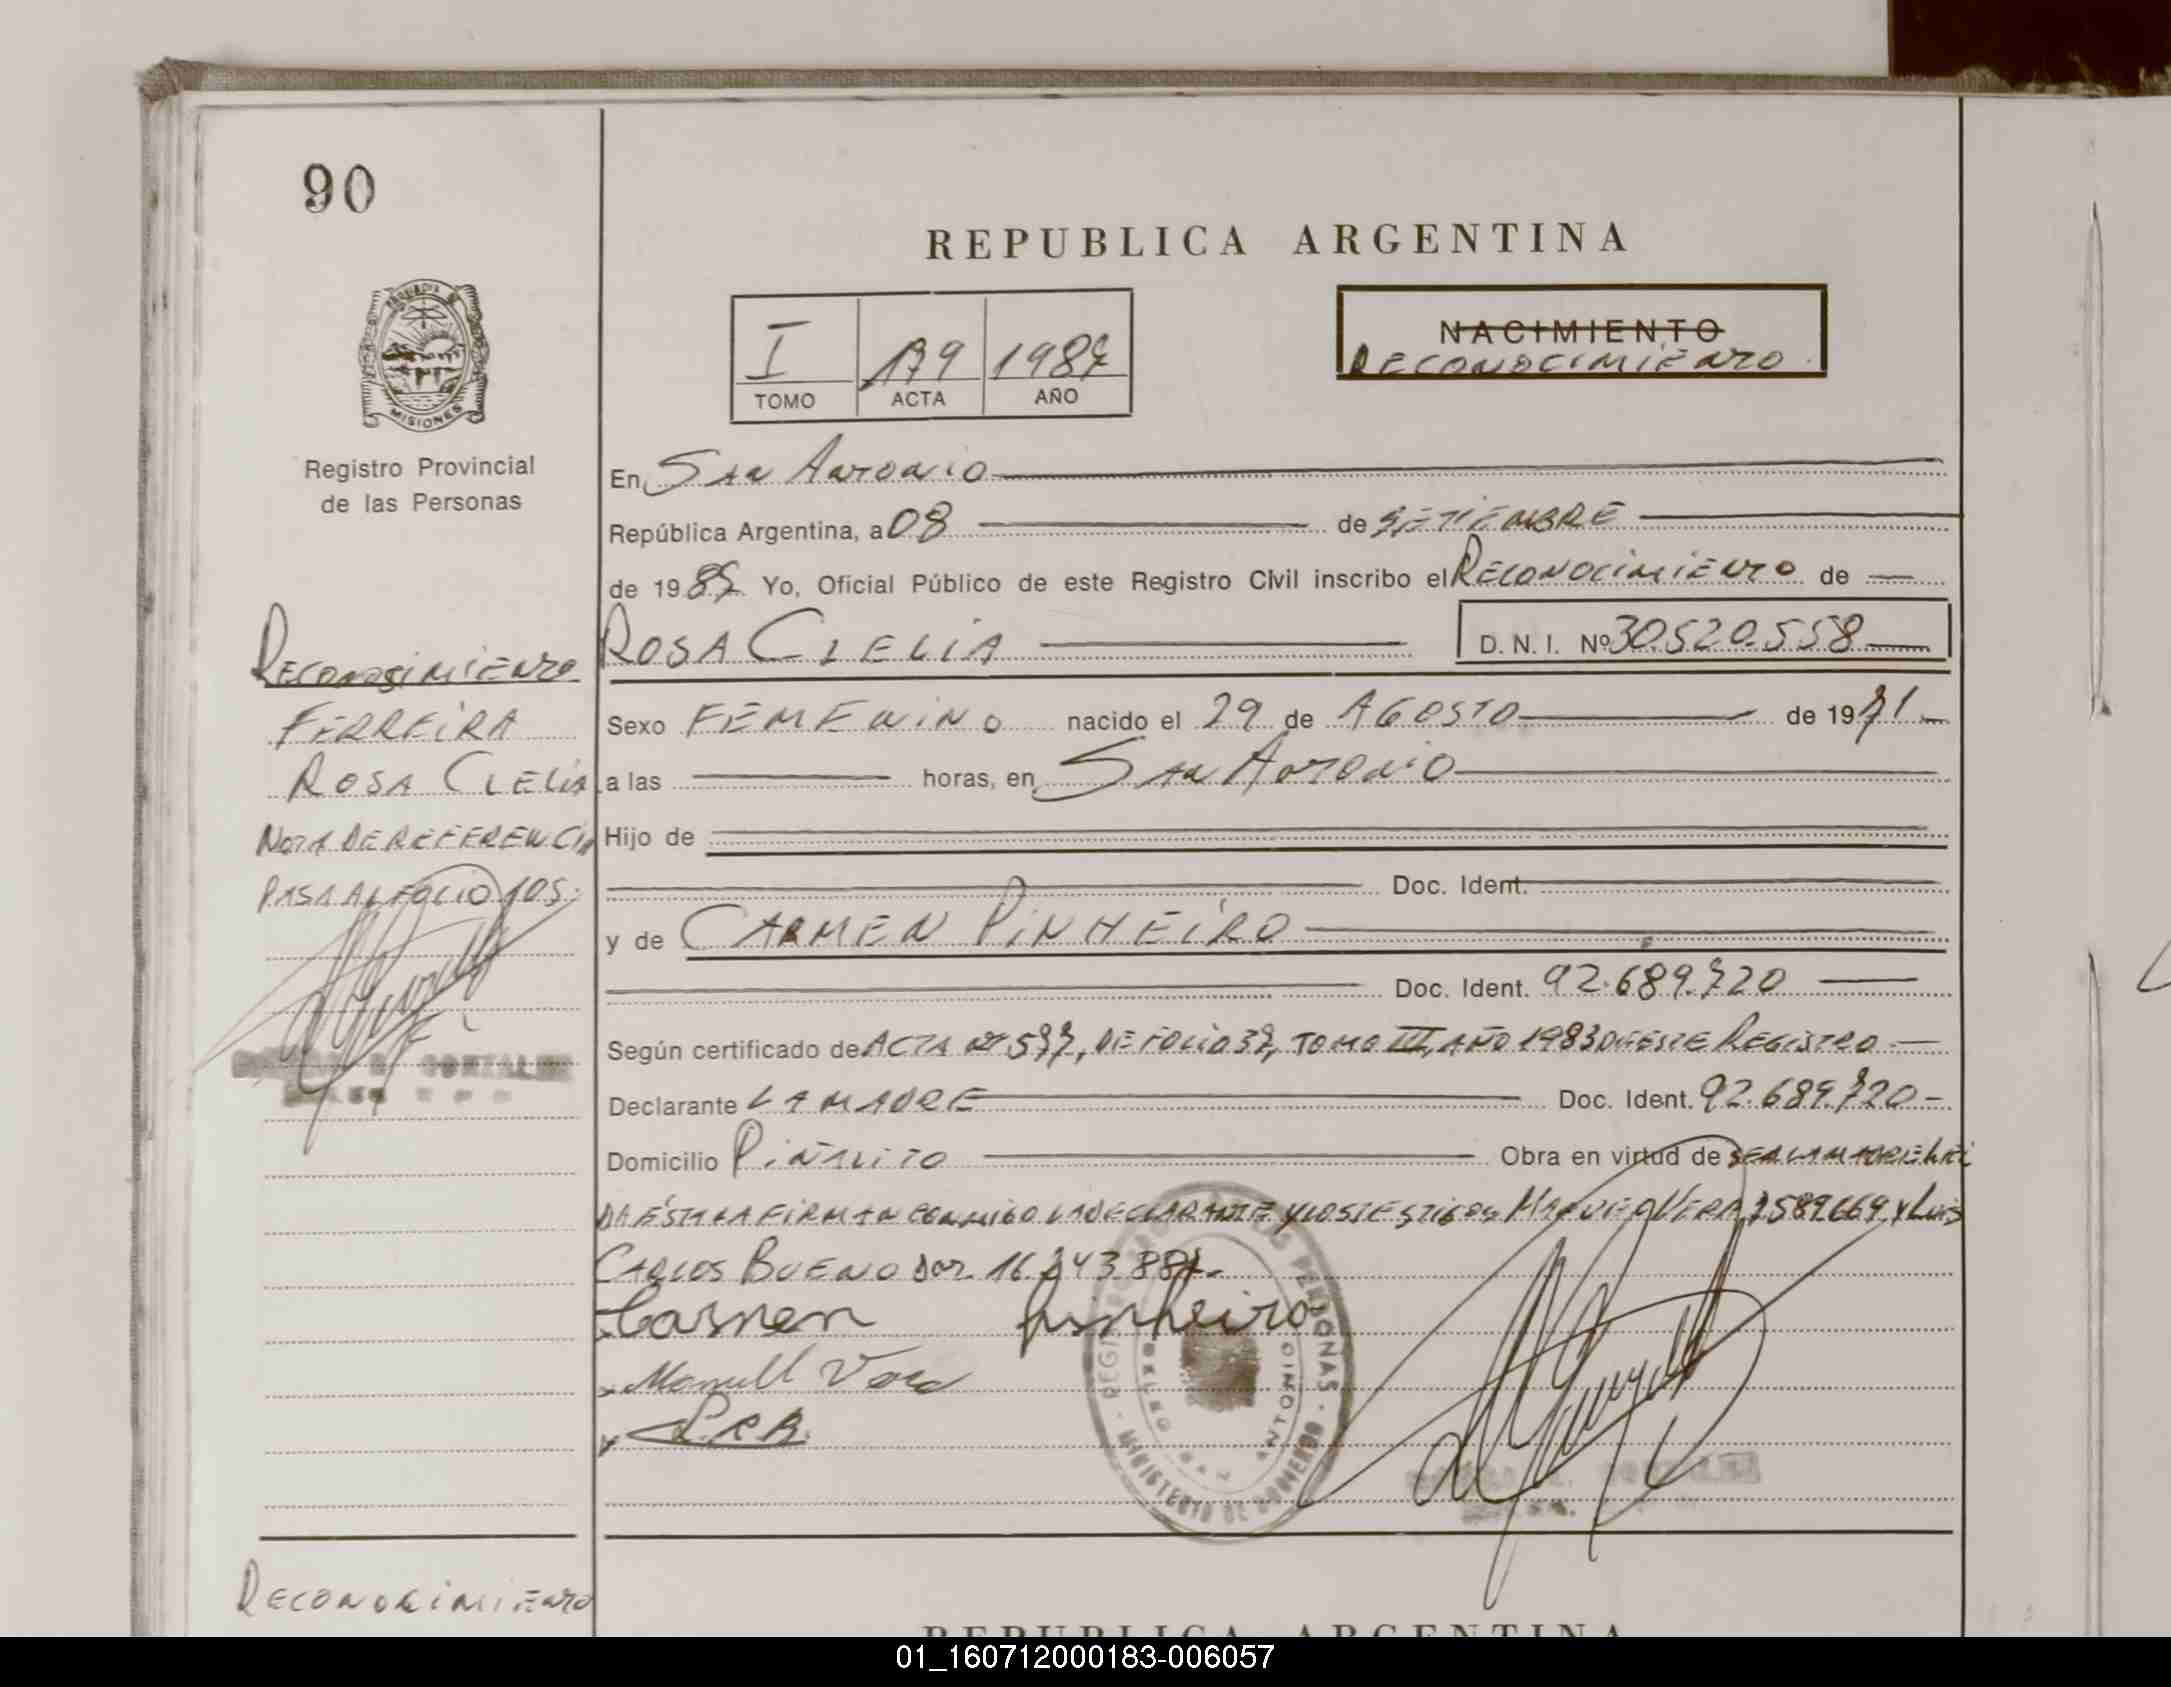 90
REPUBLICA ARGENTINA
I 179 1987
TOMO ACTA AÑO
NACIMIENTO
RECONOCIMIENTO
MISIONES
Registro Provincial
de las Personas
En SAN ANTONIO
República Argentina, a 08 de SETIEMBRE
de 1987 Yo, Oficial Público de este Registro Civil inscribo el RECONOCIMIENTO de
ROSA CLELIA D. N. I. Nº 30.520.558
RECONOCIMIENTO
FERREIRA
ROSA CLELIA
NOTA DE REFERENCIA
PASA AL FOLIO 105
Sexo FEMENINO nacido el 29 de AGOSTO de 1971
a las horas, en SAN ANTONIO
Hijo de
Doc. Ident.
y de CARMEN PINHEIRO
Doc. Ident. 92.689.720
Según certificado de ACTA Nº 577, DE FOLIO 37, TOMO III, AÑO 1983 DE ESTE REGISTRO
Declarante LA MADRE Doc. Ident. 92.689.720
Domicilio PIÑALITO Obra en virtud de SER LA MADRE LEÍ
DA ÉSTA LA FIRMAN CONMIGO LA DECLARANTE Y LOS TESTIGOS MANUEL VERA 7589669 Y LUIS
CARLOS BUENO 16.743.887
Carmen Pinheiro
Manuel Vera
L.C.B.
REGISTRO DE LAS PERSONAS
MINISTERIO DE GOBIERNO
SAN ANTONIO
GONZALEZ
RECONOCIMIENTO
REPUBLICA ARGENTINA
01_160712000183-006057